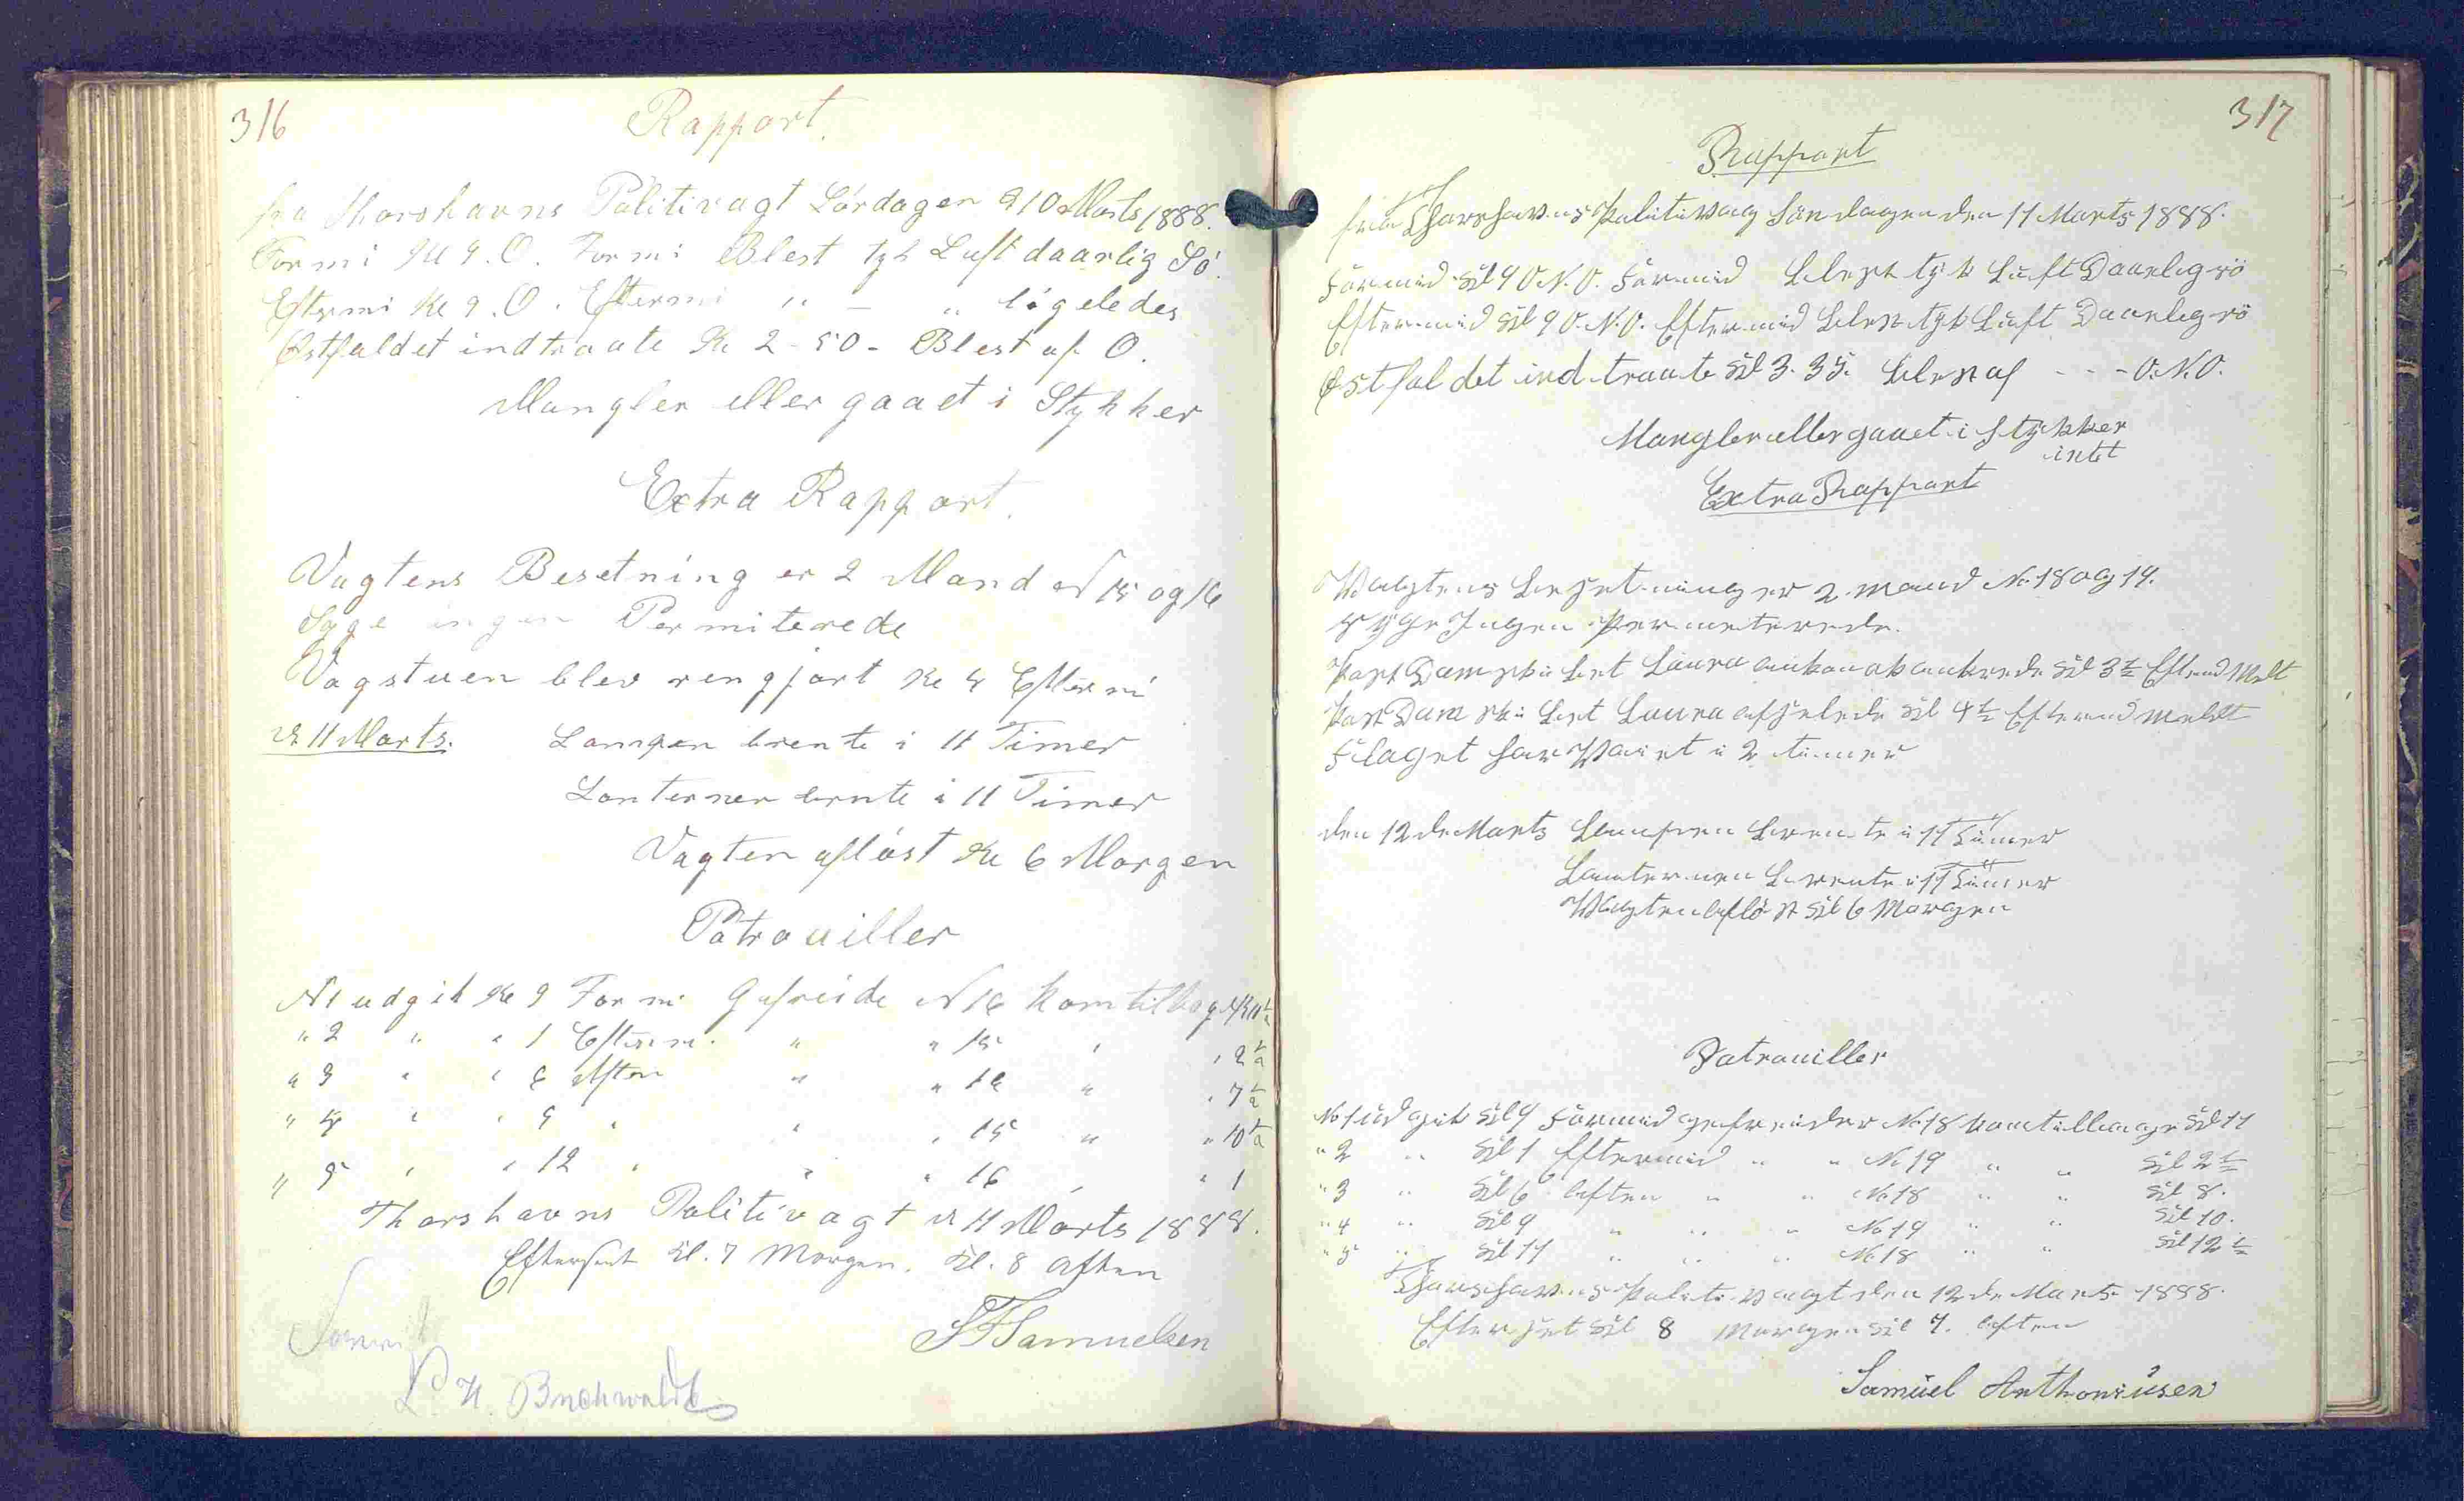 316
Rapport.
fra Thorshavns Politivagt Lördagen d 10 Marts 1888.
Formi Kl 9. O. Formi Blest tyk Luft daarlig Sö.
Eftermi Kl 9. O. Eftermi " — " lögeledes
Østfaldet indtraate Kl 2-50- Blest af O.
Mangler eller gaaet i Stykker
Extra Rapport.
Vagtens Besetning er 2 Mand N 15 og 16
Syge ingen Permiterede
Vagstuen blev rengjort Kl 4 Eftermi
d 11 Marts. Lampen brente i 11 Timer
Lanternen brnte i 11 Timer
Vagten aflöst Kl 6 Morgen
Patrouiller
N 1 udgik Kl 9 Formi Gefreide N 16 kom tilbage Kl 11 ½
" 2 " " 1 Eftermi. " " 15 " " 2 ½
" 3 " " 6 Aften " " 16 " " 7 ½
" 4 " " 9 " " " 15 " " 10 ½
" 5 " " 12 " " " 16 " " 1
Thorshavns Politivagt d 11 Marts 1888.
Efterset Kl. 7 Morgen. Kl. 8 Aften
SFSamuelsen
P. H. Buchwaldt
317
Rapport
fra Thorshavns Politivag Söndagen den 11 Marts 1888.
Formid Kl 9 O.N.O. Formid blest tyk Luft Daarlig sö
Eftermid Kl 9 O.N.O. Eftermid blest tyk Luft Daarlig sö
Østfaldet indtraate Kl 3.35. blest af - - - O.N.O.
Mangler eller gaaet i Stykker
intet
Extra Rapport
Wagtens besetning er 2 mand No 18 og 19.
syge Ingen Permeterede.
Post Dampskibet Laura ankom ankrede Kl 3 ½ Eftmd Melt
Post Dampskibet Laura afseilede Kl 4 ½ Eftermd meldt
Flaget har Waiet i 2 timer
den 12 de Marts Lampen brente i 11 Timer
Lanternen brente i 11 Timer
Wagten aflöst Kl 6 Morgen
Patrouiller
No 1 udgik Kl 9 Formid gefreider No 18 kom tilbage Kl 11
" 2 " Kl 1 Eftermid " " No 19 " " Kl 2 ½
" 3 " Kl 6 aften " " No 18 " " Kl 8.
" 4 " Kl 9 " " " No 19 " " Kl 10.
" 5 " Kl 11 " " " No 18 " " Kl 12 ½
Thorshavns Politivagt den 12 de Marts 1888.
Efterset Kl 8 Morgen Kl 7. aften
Samuel Anthoniusen